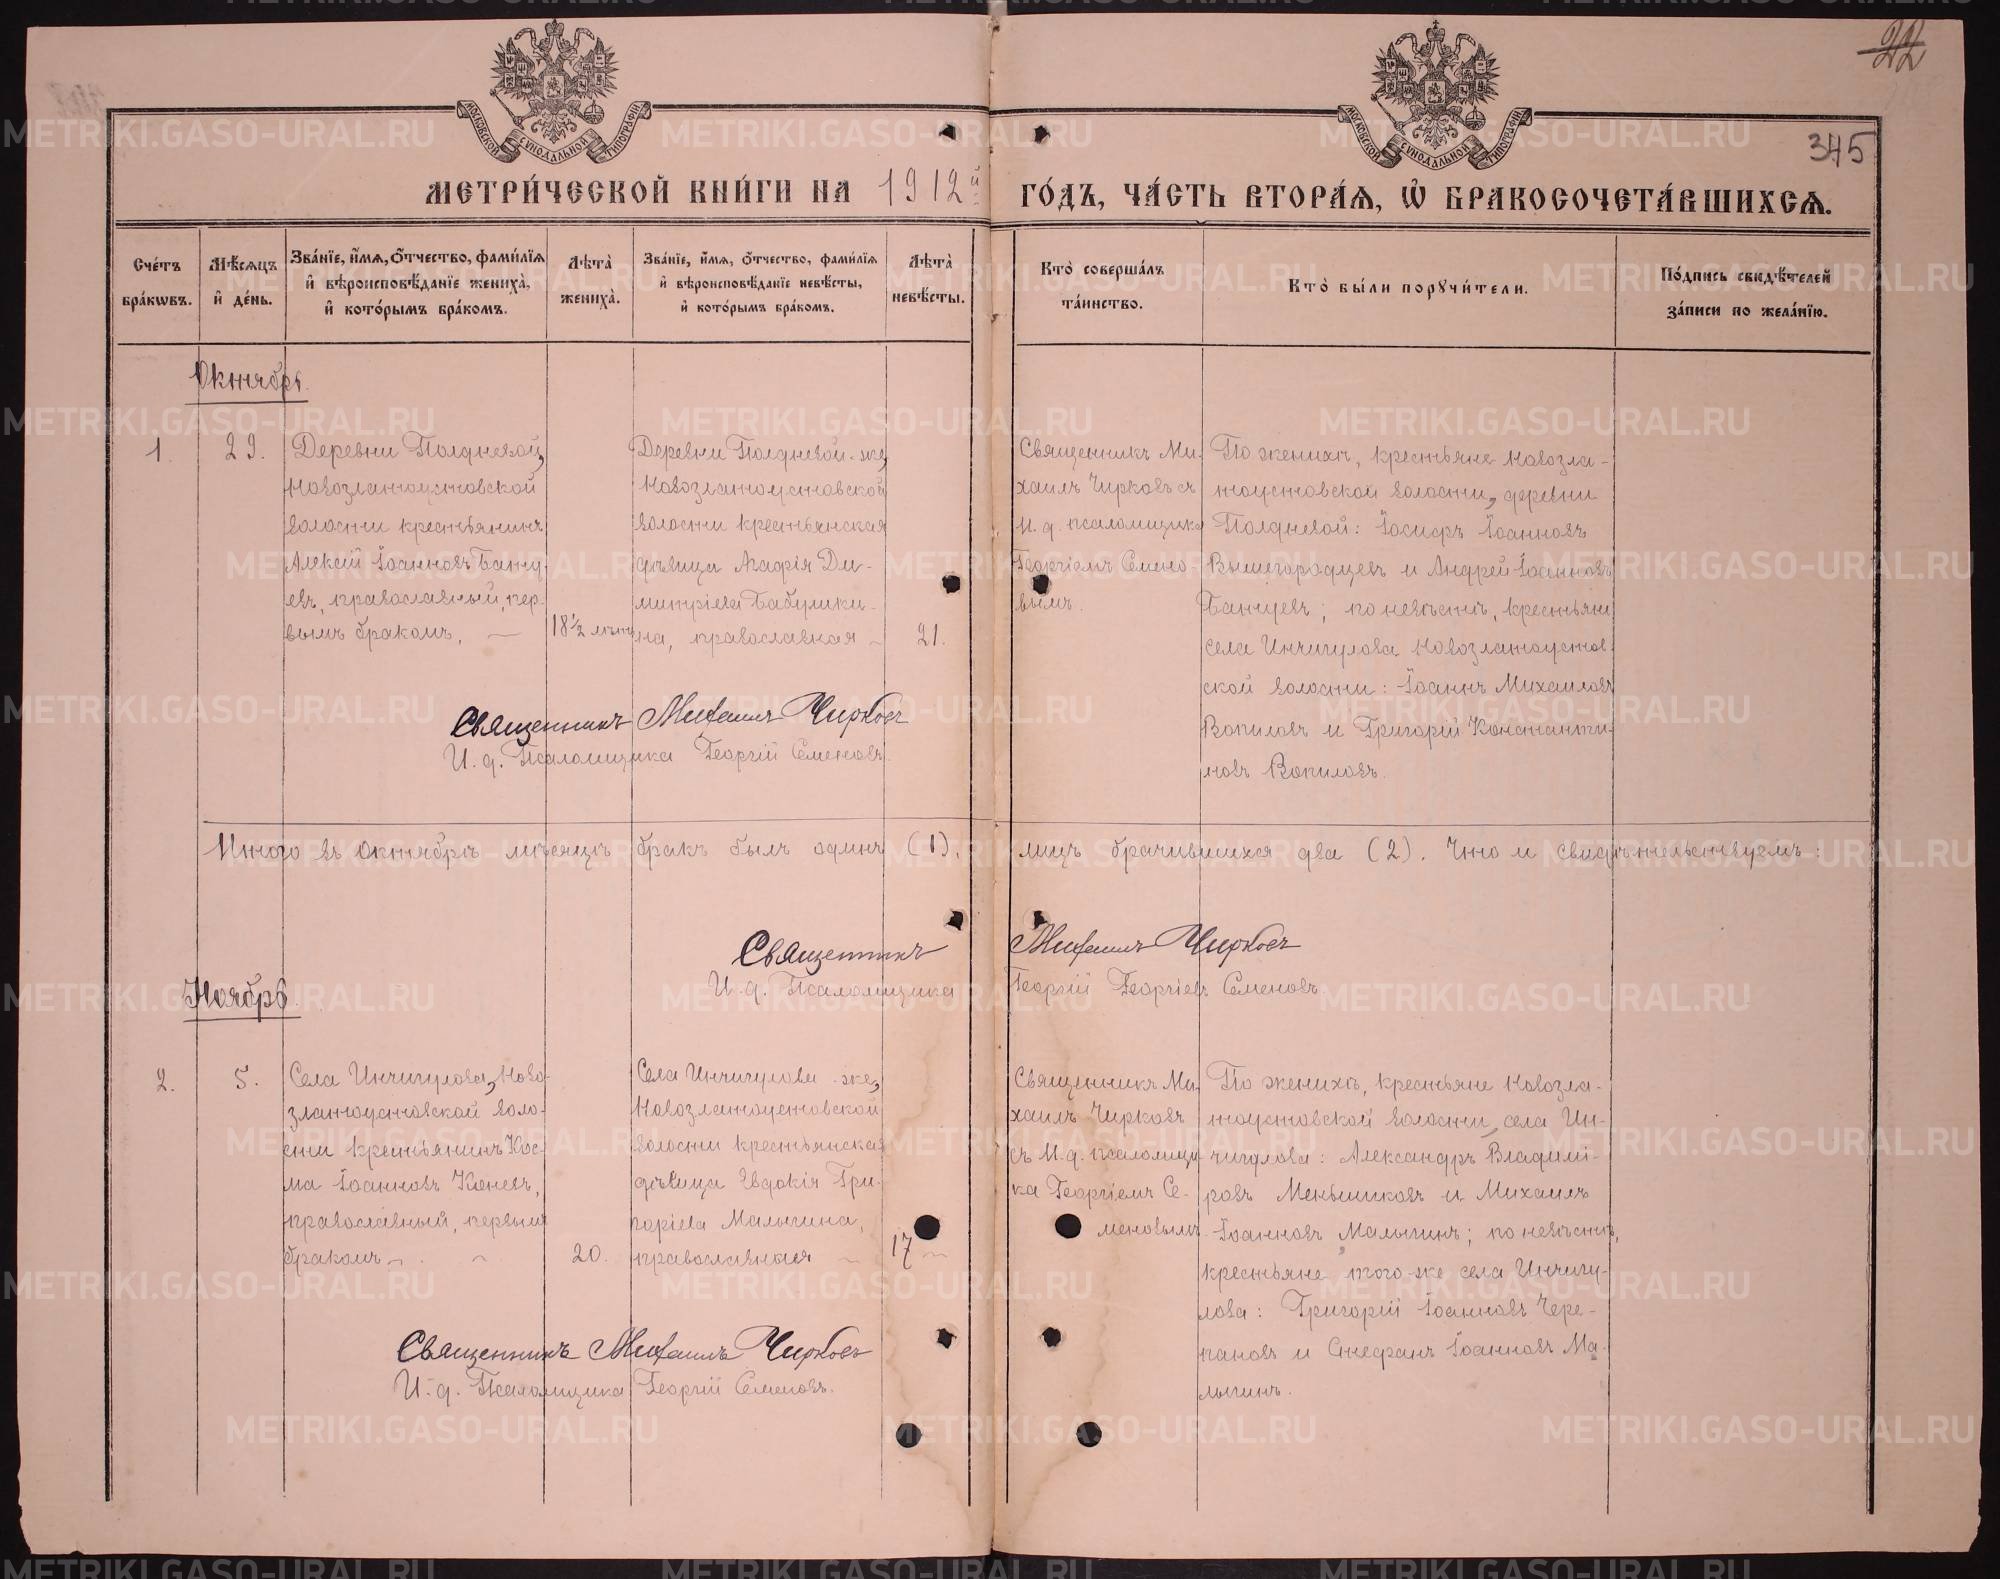 22
345
МОСКОВСКОЙ СУНОДАЛЬНОЙ ТИПОГРАФІИ
МОСКОВСКОЙ СУНОДАЛЬНОЙ ТИПОГРАФІИ
МЕТРИ́ЧЕСКОЙ КНИ́ГИ НА 1912й ГО́ДЪ, ЧА́СТЬ ВТОРА́Я, Ѡ БРАКОСОЧЕТА́ВШИХСЯ.
Сче́тъ
бра́кѡвъ.
Мѣ́сяцъ
и҆ де́нь.
Зва́нїе, и҆́мя, ѻ҆́тчество, фами́лїя
и҆ вѣроисповѣ́данїе жениха̀,
и҆ кото́рымъ бра́комъ.
Лѣта̀
жениха̀.
Зва́нїе, и҆́мя, ѻ҆́тчество, фами́лїя
и҆ вѣроисповѣ́данїе невѣ́сты,
и҆ кото́рымъ бра́комъ.
Лѣта̀
невѣ́сты.
Кто̀ соверша́лъ
та́инство.
Кто̀ бы́ли порꙋчи́тели.
По́дпись свидѣ́телей
за́писи по жела́нїю.
Октябрь.
1.
29.
Деревни Полдневой,
Новозлатоустовской
волости крестьянинъ
Алексій Іоанновъ Банцу-
евъ, православный, пер-
вымъ бракомъ, —
18½ лѣтъ
Деревни Полдневой-же,
Новозлатоустовской
волости крестьянская
дѣвица Агафія Ди-
митріева Бабушки-
на, православная —
21.
Священникъ Ми-
хаилъ Чирковъ съ
И. д. псаломщика
Георгіемъ Семено-
вымъ.
По женихѣ, крестьяне Новозла-
тоустовской волости, деревни
Полдневой: Іосифъ Іоанновъ
Вышегородцевъ и Андрей Іоанновъ
Банцуевъ; по невѣстѣ, крестьяне
села Инчигулова Новозлатоустов-
ской волости: Іоаннъ Михаиловъ
Вопиловъ и Григорій Константи-
новъ Вопиловъ.
Священникъ Михаилъ Чирковъ
И. д. Псаломщика Георгій Семеновъ.
Итого въ Октябрѣ мѣсяцѣ бракъ былъ одинъ (1), лицъ брачившихся два (2). Что и свидѣтельствуемъ:
Священникъ Михаилъ Чирковъ
И. д. Псаломщика Георгій Георгіевъ Семеновъ.
Ноябрь.
2.
5.
Села Инчигулова, Ново-
златоустовской воло-
сти крестьянинъ Кос-
ма Іоанновъ Коневъ,
православный, первымъ
бракомъ —
20.
Села Инчигулова-же,
Новозлатоустовской
волости крестьянская
дѣвица Евдокія Гри-
горіева Малыгина,
православная —
17 —
Священникъ Ми-
хаилъ Чирковъ
съ И. д. псаломщи-
ка Георгіемъ Се-
меновымъ.
По женихѣ, крестьяне Новозла-
тоустовской волости, села Ин-
чигулова: Александръ Владимі-
ровъ Меньшиковъ и Михаилъ
Іоанновъ Малыгинъ; по невѣстѣ,
крестьяне того-же села Инчигу-
лова: Григорій Іоанновъ Чере-
пановъ и Стефанъ Іоанновъ Ма-
лыгинъ.
Священникъ Михаилъ Чирковъ
И. д. Псаломщика Георгій Семеновъ.
METRIKI.GASO-URAL.RU